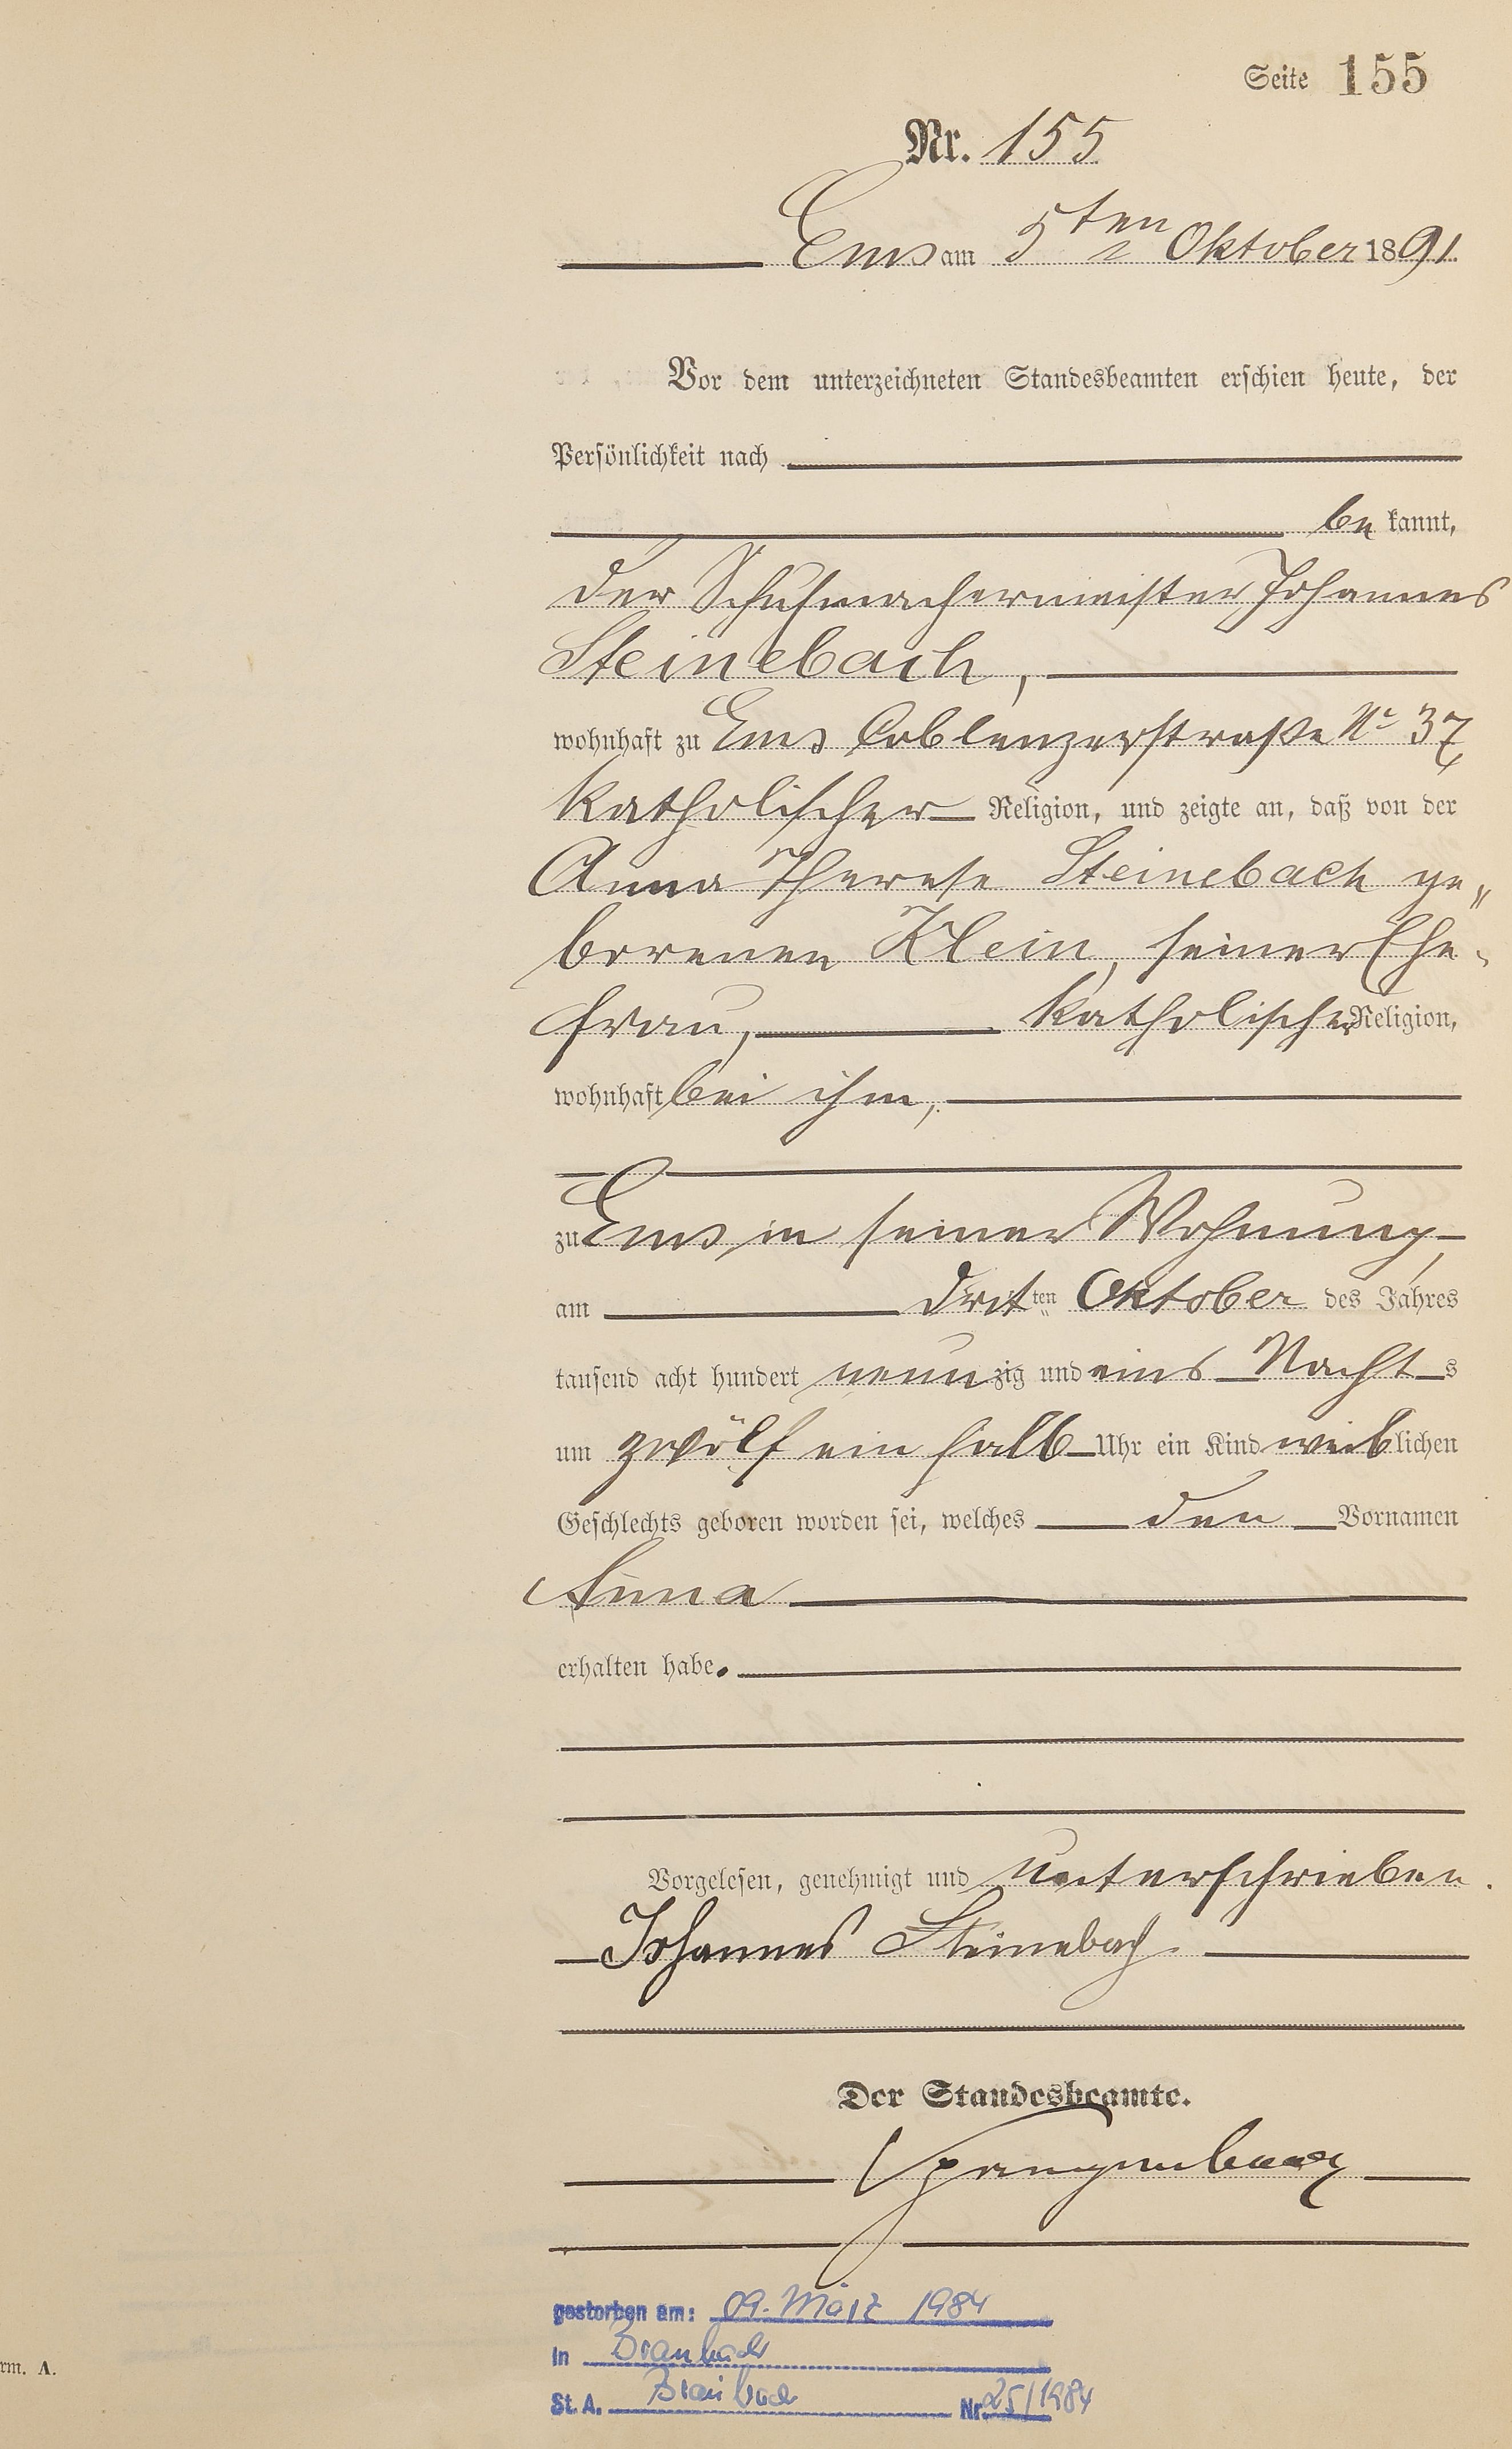 Seite 155
Nr. 155
Ems am 5ten Oktober 1891.
Vor dem unterzeichneten Standesbeamten erschien heute, der
Persönlichkeit nach
be kannt,
der Schuhmachermeister Johannes
Steinebach,
wohnhaft zu Ems Coblenzerstraße No 37,
katholischer Religion, und zeigte an, daß von der
Anna Therese Steinebach ge„
borenen Klein, seiner Ehe-
frau, katholischer Religion,
wohnhaft bei ihm,
zu Ems in seiner Wohnung,
am dritten Oktober des Jahres
tausend acht hundert neunzig und eins Nachts
um zwölf ein halb Uhr ein Kind weiblichen
Geschlechts geboren worden sei, welches den Vornamen
Anna
erhalten habe.
Vorgelesen, genehmigt und unterschrieben.
Johannes Steinebach.
Der Standesbeamte.
gestorben am: 09. März 1984
in Braubach
St. A. Braubach Nr. 25/1984
rm. A.